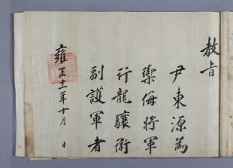 敎旨
尹東源爲
禦侮將軍
行龍驤衛
副護軍者
雍正十一年十月 日